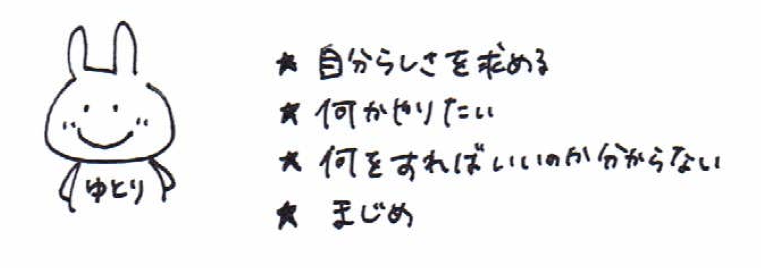 ゆとり
★ 自分らしさを求める
★ 何かやりたい
★ 何をすればいいのか分からない
★ まじめ